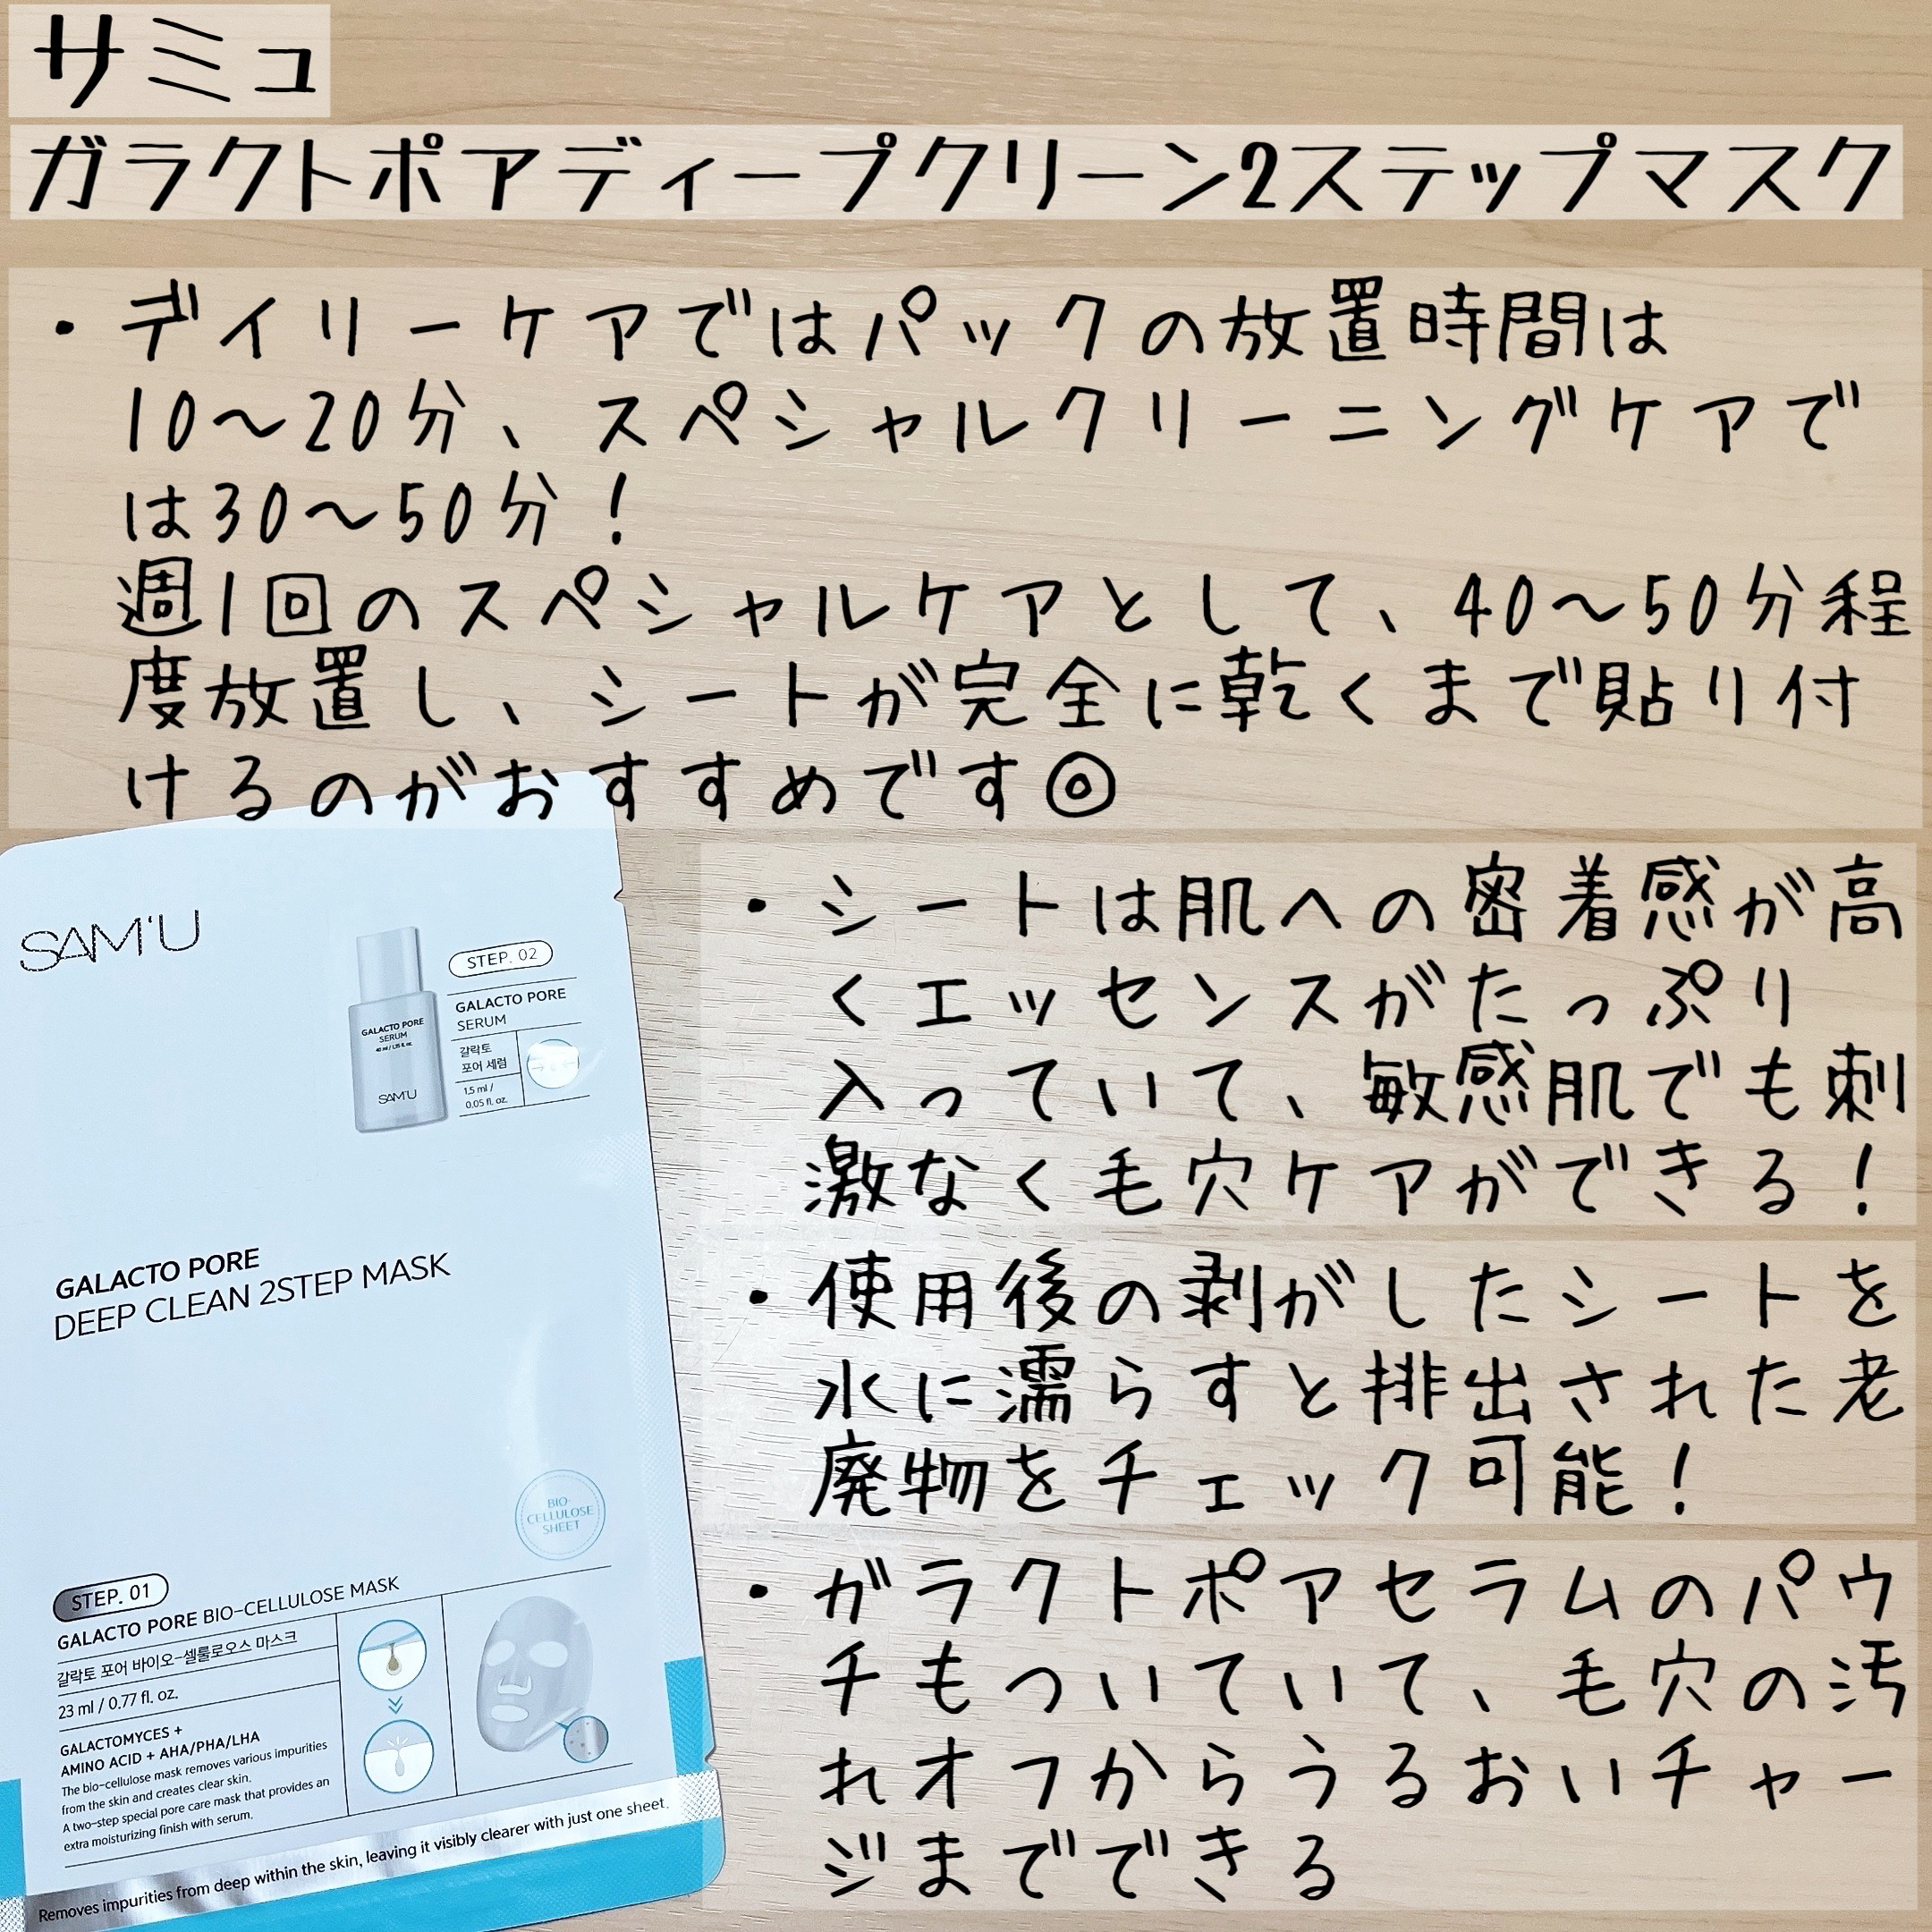 サミュ
ガラクトポアディープクリーン2ステップマスク
・デイリーケアではパックの放置時間は
10〜20分、スペシャルクリーニングケアで
は30〜50分！
週1回のスペシャルケアとして、40〜50分程
度放置し、シートが完全に乾くまで貼り付
けるのがおすすめです◎
・シートは肌への密着感が高
くエッセンスがたっぷり
入っていて、敏感肌でも刺
激なく毛穴ケアができる！
・使用後の剥がしたシートを
水に濡らすと排出された老
廃物をチェック可能！
・ガラクトポアセラムのパウ
チもついていて、毛穴の汚
れオフからうるおいチャー
ジまでできる
SAM'U
STEP. 02
GALACTO PORE
SERUM
갈락토
포어 세럼
1.5 ml /
0.05 fl. oz.
GALACTO PORE
SERUM
40 ml / 1.35 fl. oz.
SAM'U
GALACTO PORE
DEEP CLEAN 2STEP MASK
BIO-
CELLULOSE
SHEET
STEP. 01
GALACTO PORE BIO-CELLULOSE MASK
갈락토 포어 바이오-셀룰로오스 마스크
23 ml / 0.77 fl. oz.
GALACTOMYCES +
AMINO ACID + AHA/PHA/LHA
The bio-cellulose mask removes various impurities
from the skin and creates clear skin.
A two-step special pore care mask that provides an
extra moisturizing finish with serum.
Removes impurities from deep within the skin, leaving it visibly clearer with just one sheet.